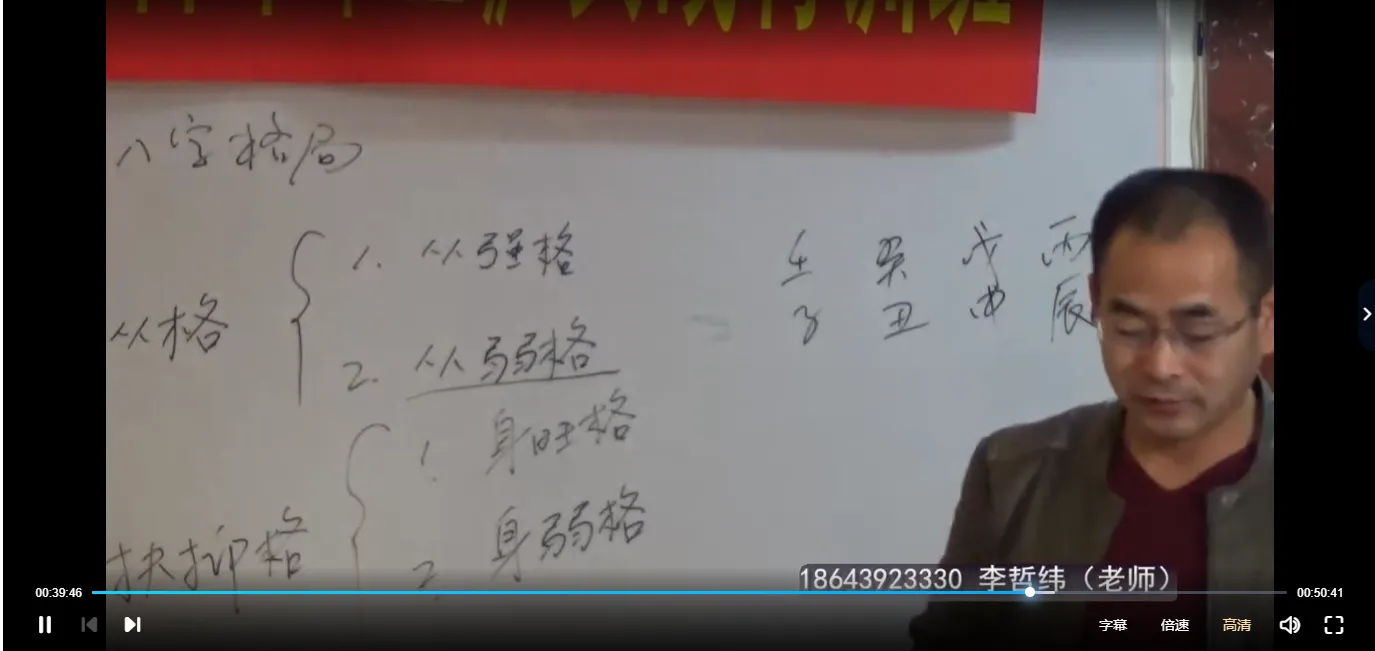 训班
八字格局
从格
1. 从强格
2. 从弱格
壬 癸 戊 丙
子 丑 申 辰
扶抑格
1. 身旺格
2. 身弱格
18643923330 李哲纬（老师）
00:39:46
00:50:41
字幕 倍速 高清